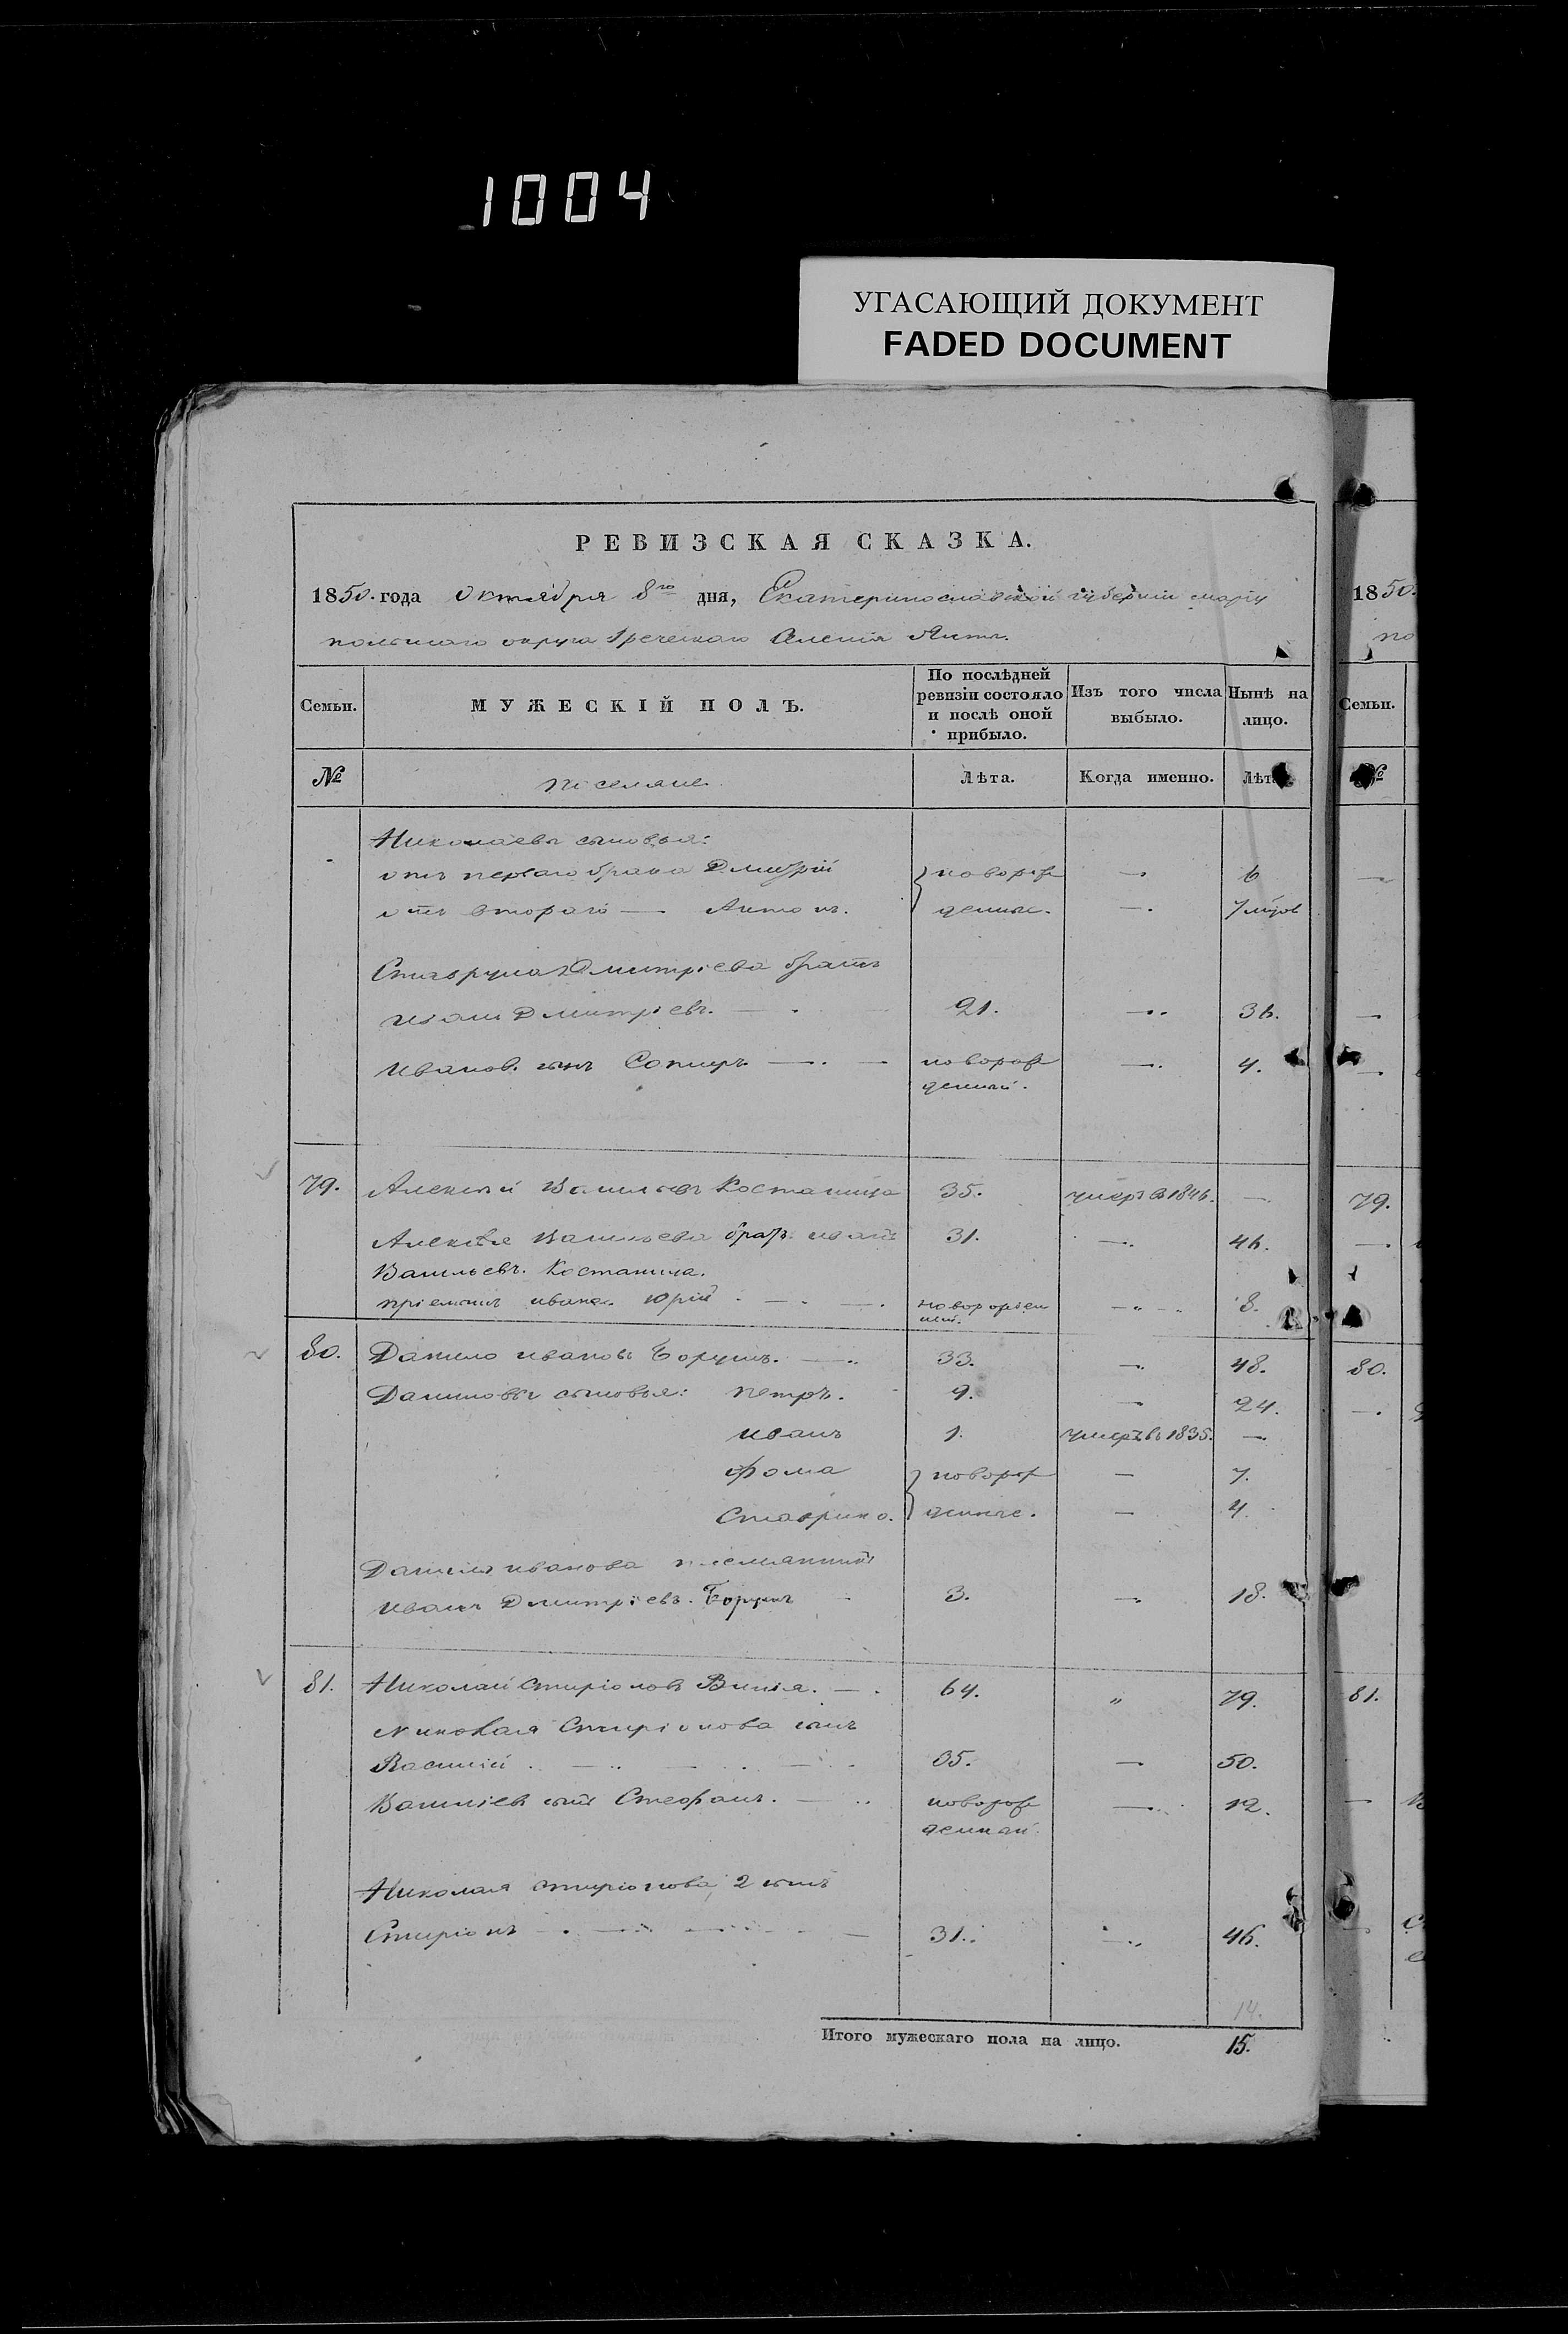 1004
УГАСАЮЩИЙ ДОКУМЕНТ
FADED DOCUMENT
РЕВИЗСКАЯ СКАЗКА.
1850. года Октября 8го дня, Екатеринославской губернии Мариу
польскаго округа Греческаго Селенія
Семьи. МУЖЕСКІЙ ПОЛЪ. По послѣдней ревизіи состояло и послѣ оной прибыло. Изъ того числа выбыло. Нынѣ на лицо.
№ поселяне Лѣта. Когда именно. Лѣта.
Николаевы сыновья:
отъ перваго брака Дмитрій новорож — 6
отъ втораго — Антонъ. денные. — 7
Дмитріева братъ
Иванъ Дмитріевъ. — 21. — 36.
Иванов. сынъ Сотиръ — новорож — 4.
денный.
79. Алексѣй Васильевъ Костаница 35. умеръ в 1846. —
Алексѣя Васильева братъ Иванъ 31. — 46.
Васильевъ. Костаница.
пріемышъ Ивана Юрій — новорожден — 8.
ный.
80. Данило Ивановъ Борушъ. — 33. — 48.
Даниловы сыновья: Петръ. 9. — 24.
Иванъ 1. умеръ въ 1835. —
Фома новорож — 7.
Ставрино. денные. — 4.
Данила Иванова племянникъ
Иванъ Дмитріевъ. Борушъ 3. — 18.
81. Николай Спиріоновъ 64. „ 79.
Николая Спиріонова сынъ
Василій 35. — 50.
Василіевъ сынъ Стефанъ. — новорож — 12.
денный
Николая Спиріонова 2 сынъ
Спиріонъ — 31. — 46.
14.
Итого мужескаго пола на лицо. 15.
1850.
по
Семьи.
№
79.
80.
81.